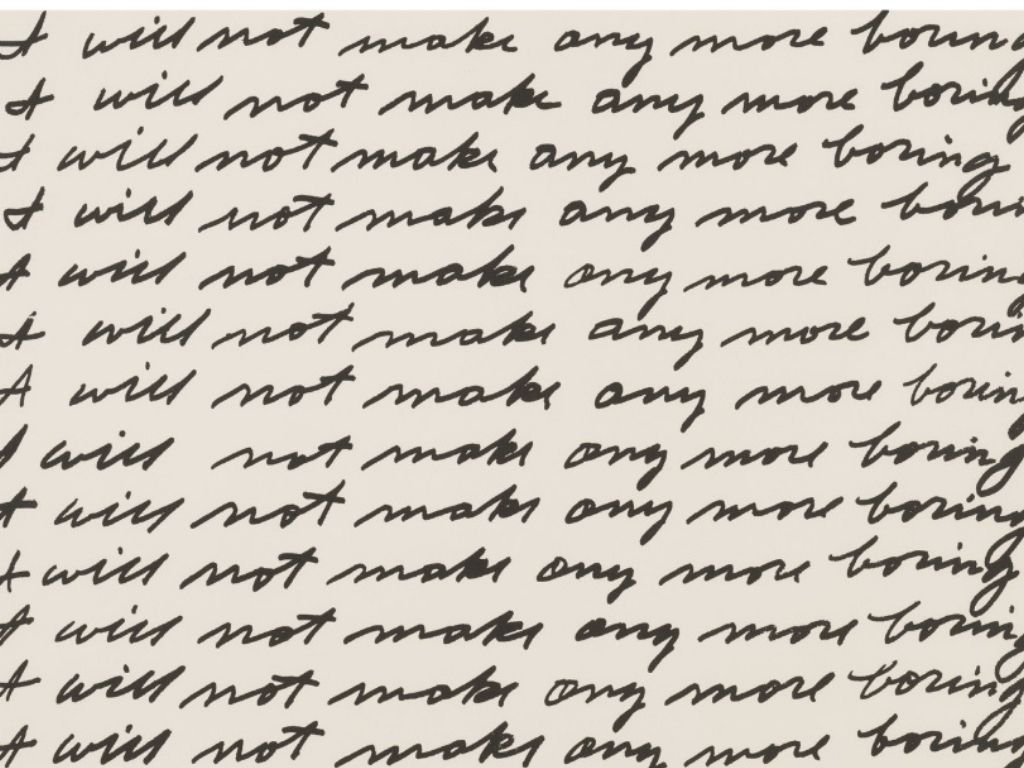 I will not make any more boring
I will not make any more boring
I will not make any more boring
I will not make any more boring
I will not make any more boring
I will not make any more boring
I will not make any more boring
I will not make any more boring
I will not make any more boring
I will not make any more boring
I will not make any more boring
I will not make any more boring
I will not make any more boring